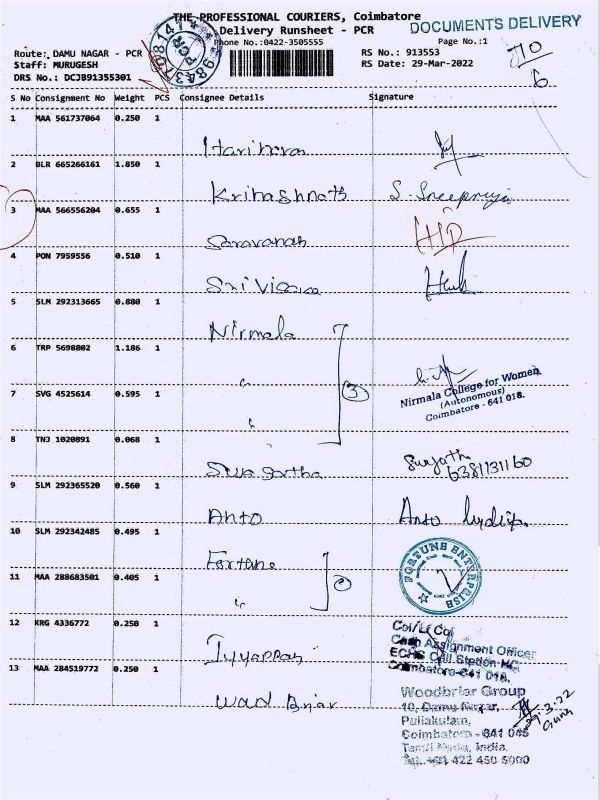 THE PROFESSIONAL COURIERS, Coimbatore
DOCUMENTS DELIVERY
Delivery Runsheet - PCR
Phone No.:0422-3505555
Page No.:1
70
6
9843708147
PCR
Route: DAMU NAGAR - PCR
RS No.: 913553
Staff: MURUGESH
RS Date: 29-Mar-2022
DRS No.: DCJB91355301
S No Consignment No Weight PCS Consignee Details Signature
1 MAA 561737064 0.250 1
Hariharan
2 BLR 665266161 1.850 1
Krihashnath S. Sreepriya
3 MAA 566556204 0.655 1
Saravanan
4 PON 7959556 0.510 1
Sri Vigava
5 SLM 292313665 0.880 1
Nirmala
6 TRP 5698802 1.186 1
" 3
Nirmala College for Women
(Autonomous)
Coimbatore - 641 018.
7 SVG 4525614 0.595 1
"
8 TNJ 1020891 0.068 1
Sujatha
6381131160
9 SLM 292365520 0.560 1
Anto Anto
10 SLM 292342485 0.495 1
Fortune
FORTUNE ENTERPRISE
11 MAA 288683501 0.405 1
"
12 KRG 4336772 0.250 1
Iyyappan
Col/Lt Col
Cash Assignment Officer
ECHS Cell Station HQ
Coimbatore-641 018.
13 MAA 284519772 0.250 1
Wood Briar
Woodbriar Group
10, Damu Nagar,
Puliakulam,
Coimbatore - 641 045
Tamil Nadu, India.
Tel. +91 422 450 5000
29.3.22